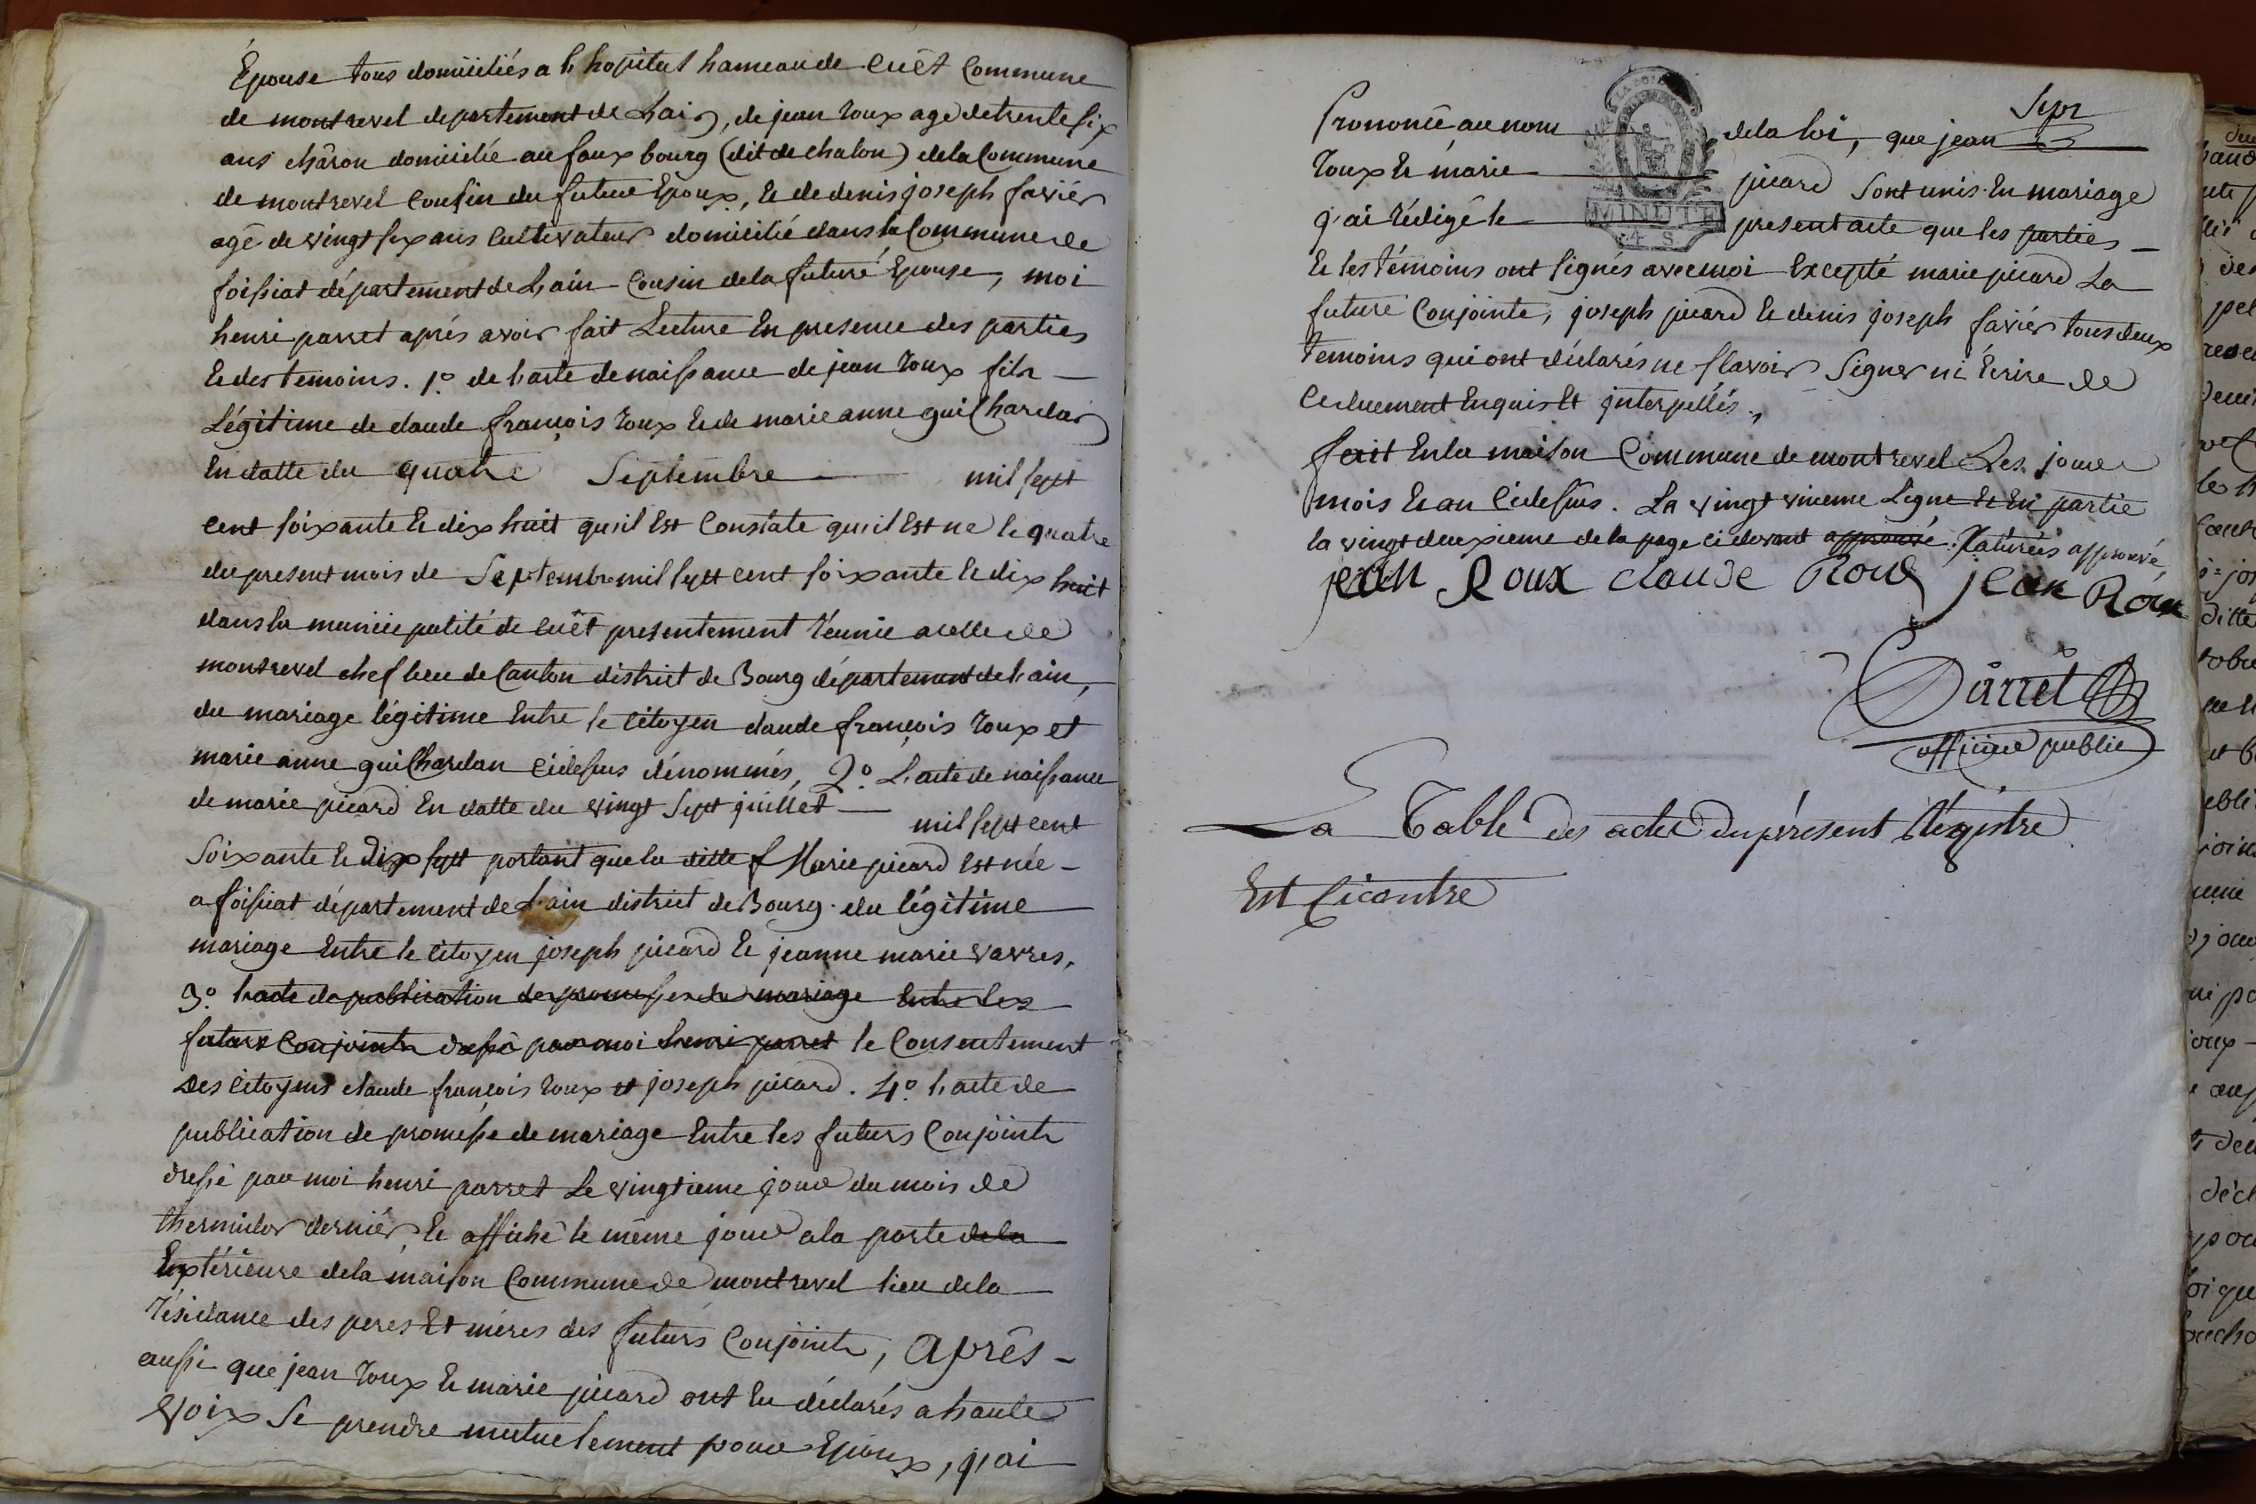 Épouse tous domiciliés a lhopital hameau de Cuêt Commune
de montrevel departement de Lain, de jean roux agé de trente six
ans châron domicilié au faux bourg (dit de chalon) de la Commune
de montrevel Cousin du futur Epoux, & de denis joseph favier
agé de vingt six ans Cultivateur domicilié dans la Commune de
foissiat département de Lain Cousin de la future Epouse, moi
henri parret aprés avoir fait Lecture En presence des parties
& des temoins. 1.º de lacte de naissance de jean roux fils
Légitime de claude françois roux & de marie anne guilhardan
En datte du quatre Septembre mil sept
cent soixante & dix huit quil Est Constate quil Est né le quatre
du present mois de Septembre mil sept cent soixante & dix huit
dans la municipalité de Cuêt presentement réunie a celle de
montrevel chef lieu de Canton district de Bourg département de Lain,
du mariage légitime Entre le Citoyen claude françois roux et
marie anne guilhardan Cidessus dénommés, 2.º L'acte de naissance
de marie picard En datte du vingt sept juillet mil sept cent
soixante & dix sept portant que la ditte Marie picard Est née
a foissiat département de Lain district de Bourg du légitime
mariage Entre le Citoyen joseph picard & jeanne marie vavres,
3.º lacte de publication de promesses de mariage Entre les
futurs Conjoints dressé par moi henri parret le Consentement
Des Citoyens claude françois roux et joseph picard. 4.º lacte de
publication de promesse de mariage Entre les futurs Conjoints
dressé par moi henri parret Le vingtieme jour du mois de
thermidor dernier, & affiché le même jour a la porte de la
Extérieure de la maison Commune de montrevel lieu de la
résidance des peres Et méres des futurs Conjoints, Aprés
aussi que jean roux & marie picard ont Eu déclarés a haute
voix Se prendre mutuelement pour Epoux, j'ai
Sept
Prononcé au nom de la loi, que jean
roux & marie picard Sont unis En mariage
j'ai rédigé le present acte que les parties
MINUTE
4 S
& les témoins ont signés avec moi Excepté marie picard La
future Conjointe, joseph picard & denis joseph favier tous deux
temoins qui ont déclarés ne sçavoir Signer ni Écrire de
Ce duement Enquis Et interpellés.,
fait En la maison Commune de montrevel Les jour
mois & an Cidessus. La vingt unieme Ligne Et En partie
la vingt deuxieme de la page ci devant approuvé. Raturées approuvé,
jean Roux claude Roux jean Roux
Parret
officier public
La Table des actes du présent Régistre
Est Cicontre